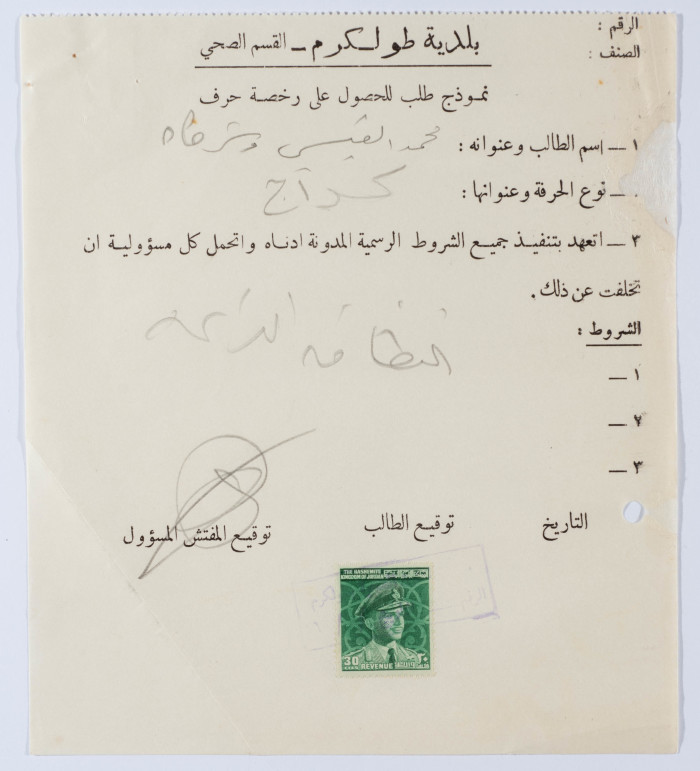 الرقم :
بلدية طولكرم ـ القسم الصحي
الصنف :
نموذج طلب للحصول على رخصة حرف
١ ـ اسم الطالب وعنوانه : محمد القيسي وشركاه
ـ نوع الحرفة وعنوانها : كراج
٣ ـ اتعهد بتنفيذ جميع الشروط الرسمية المدونة ادناه واتحمل كل مسؤولية ان
تخلفت عن ذلك .
النظافة الدائمة
الشروط :
١ ـ
٢ ـ
٣ ـ
التاريخ توقيع الطالب توقيع المفتش المسؤول
THE HASHEMITE
KINGDOM OF JORDAN
30 REVENUE ٣٠